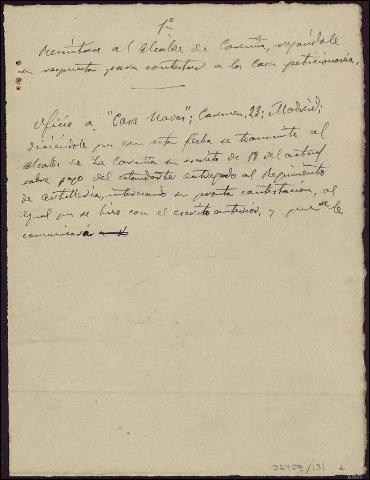 1º
Remitase al Alcalde de Coruña, rogándole
su respuesta para contestar a la casa peticionaria.
Oficio a "Casa Navas"; Carmen, 23; Madrid;
diciéndole que con esta fecha se transmite al
Alcalde de La Coruña su escrito de 18 del actual
sobre pago del estandarte entregado al Regimiento
de Artillería, interesando su pronta contestación, al
igual que se hizo con el escrito anterior, y que se le
comunicará
32459/131 2